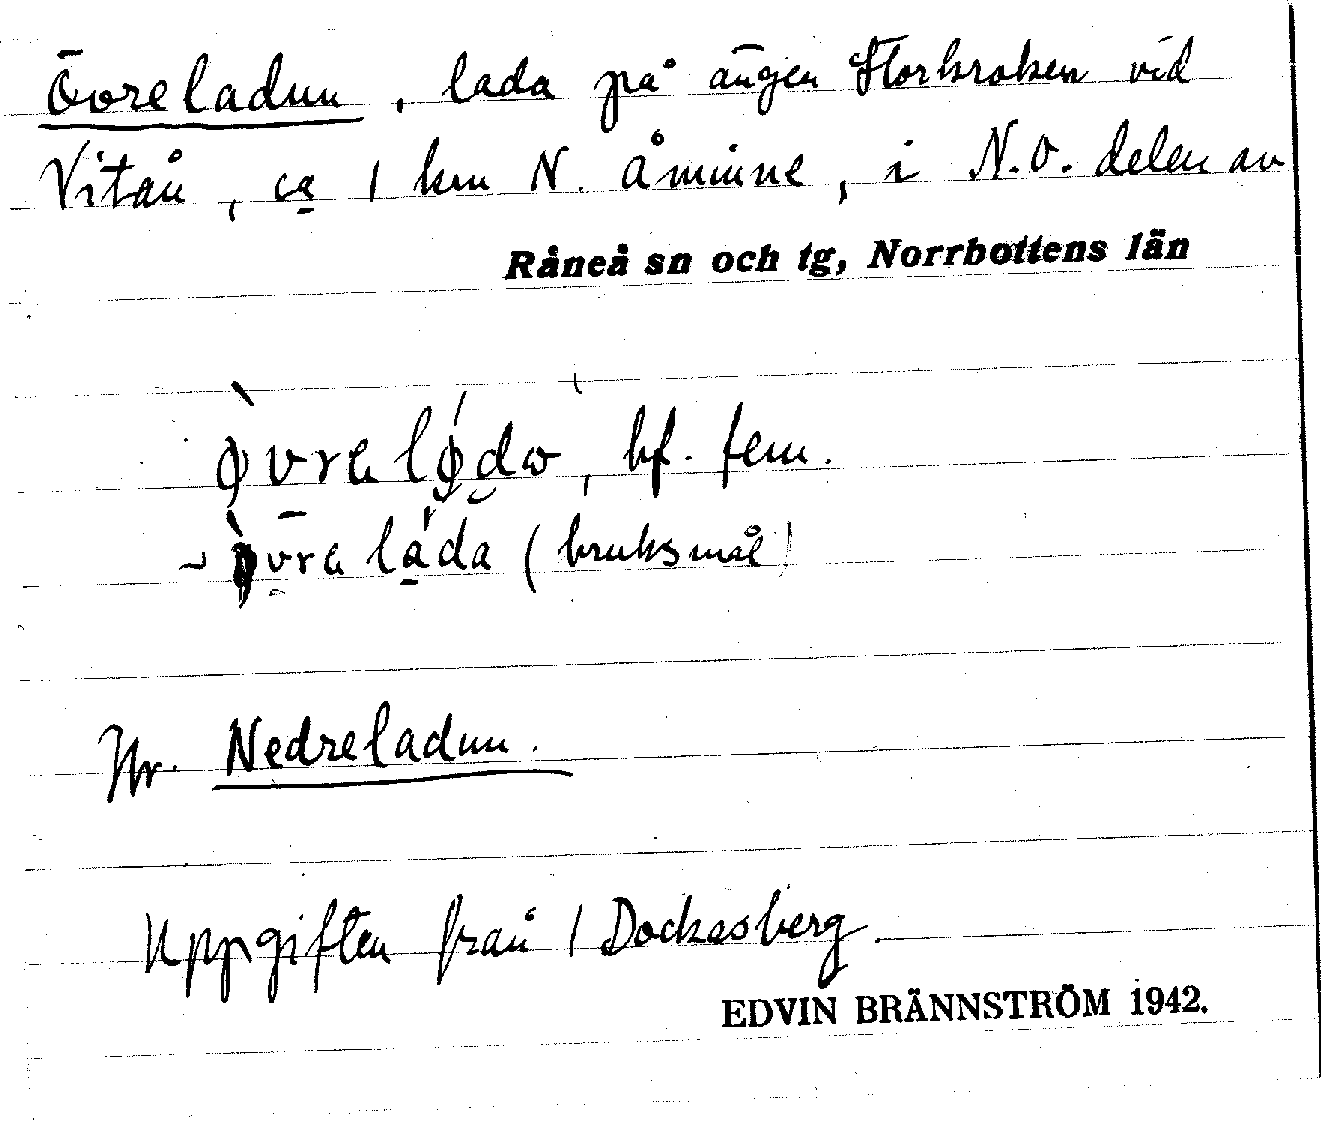 Övreladun, lada på ängen Storkroken vid
Vitån, ca 1 km N. Åminne, i N.O. delen av
Råneå sn och tg, Norrbottens län
bf. fem.
(bruksmål)
Jfr. Nedreladun.
Uppgiften från 1 Dockasberg.
EDVIN BRÄNNSTRÖM 1942.